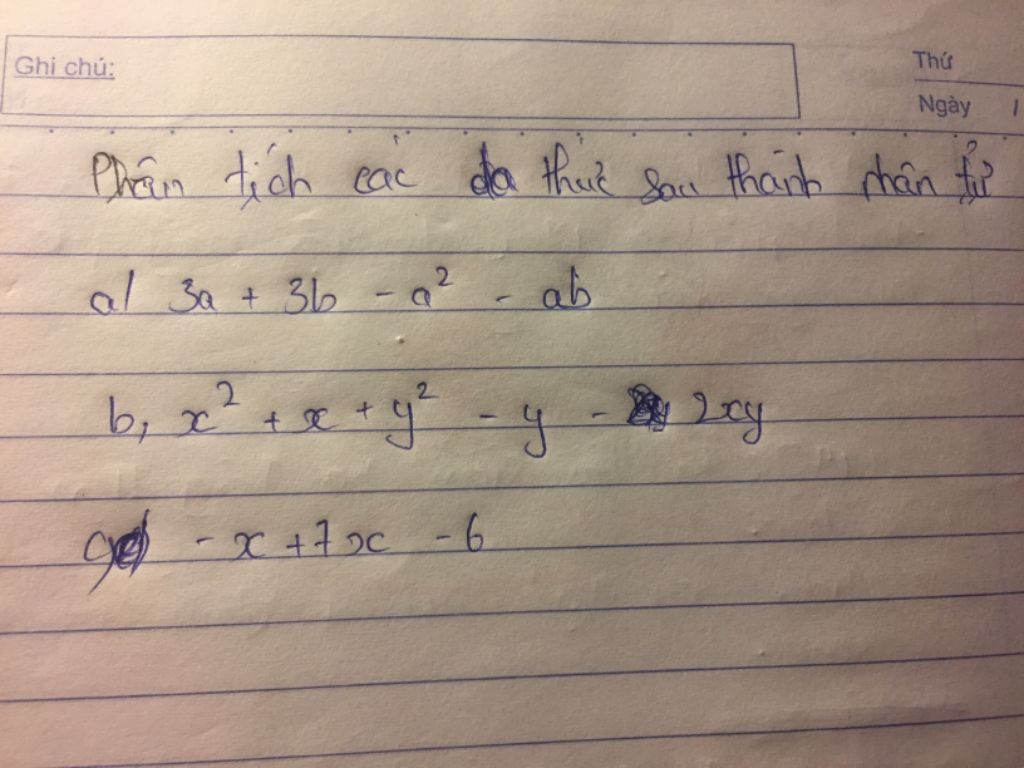 Ghi chú:
Thứ
Ngày
Phân tích các đa thức sau thành nhân tử
a/ 3a + 3b - a² - ab
b, x² + x + y² - y - 2xy
c, - x + 7x - 6